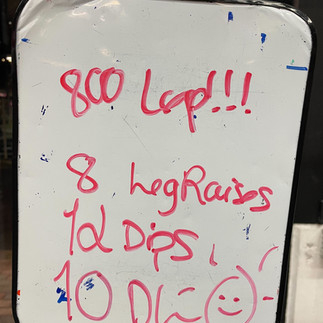 800 Lap!!!
8 Leg Raises
12 Dips
10